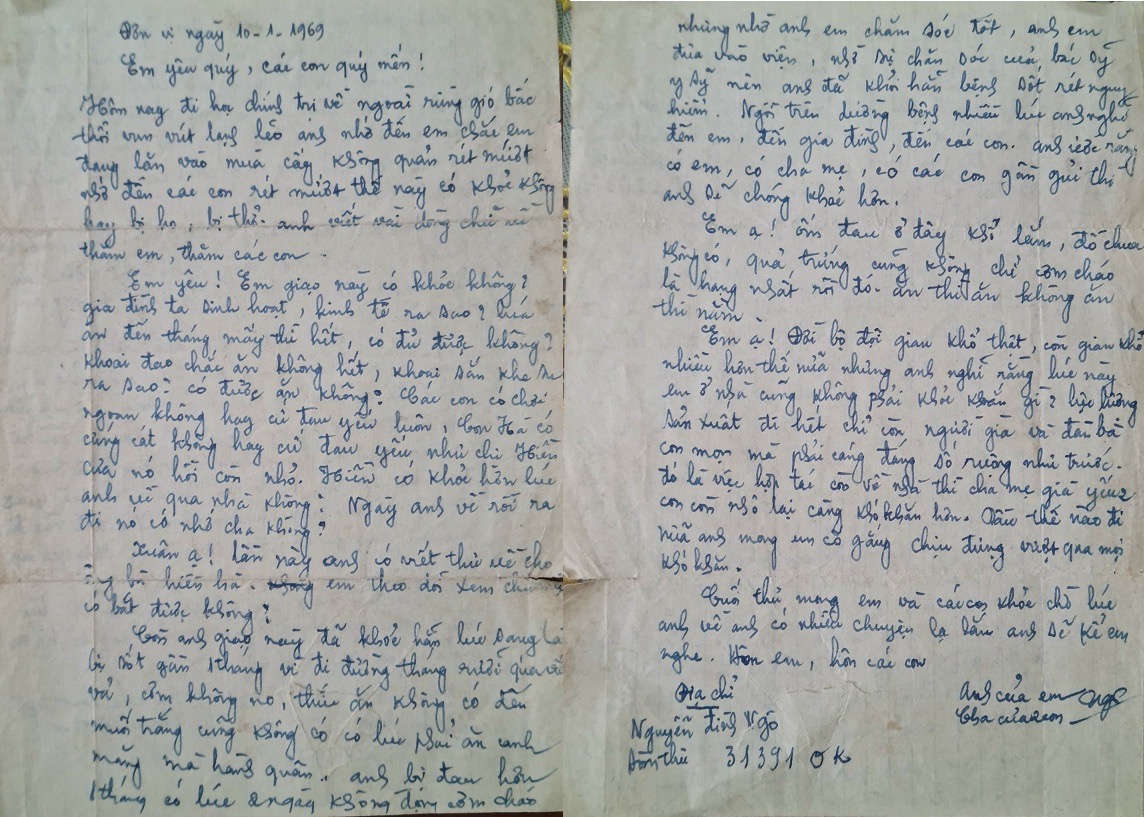 Đơn vị ngày 10-1-1969
Em yêu quý, các con quý mến!
Hôm nay đi học chính trị về ngoài rừng gió bấc
thổi vun vút lạnh lẽo anh nhớ đến em chắc em
đang lăn vào mùa cấy không quản rét mướt
nhớ đến các con rét mướt thế này có khỏe không
hay bị ho, bị thở. anh viết vài dòng chữ về
thăm em, thăm các con.
Em yêu! Em giao này có khỏe không?
gia đình ta sinh hoạt, kinh tế ra sao? lúa
ăn đến tháng mấy thì hết, có đủ được không?
khoai đao chắc ăn không hết, khoai sắn khe
ra sao? có được ăn không? Các con có chơi
ngoan không hay cứ đau yếu luôn, Con Hà có
cứng cát không hay cứ đau yếu như chị Hiền
của nó hồi còn nhỏ. Hiền có khỏe hơn lúc
anh về qua nhà không? Ngày anh về rồi ra
đi nó có nhớ cha không?
Xuân ạ! lần này anh có viết thư về cho
ông bà hiền hà. em theo dõi xem
có bắt được không?
Còn anh giao này đã khỏe hẳn lúc sang
bị sốt gần 1 tháng vì đi đường tháng rưỡi quá vất
vả, cơm không no, thức ăn không có đến
muối trắng cũng không có có lúc phải ăn canh
măng mà hành quân.. anh bị đau hơn
1 tháng có lúc 2 ngày không động cơm cháo
nhưng nhờ anh em chăm sóc tốt, anh em
đưa vào viện, nhờ sự chăn sóc của bác sỹ
y sỹ nên anh đã khỏi hẳn bệnh sốt rét nguy
hiểm. Ngồi trên dường bệnh nhiều lúc anh nghĩ
đến em, đến gia đình, đến các con. anh ước rằng
có em, có cha mẹ, có các con gần gũi thì
anh sẽ chóng khỏe hơn.
Em ạ! ốm đau ở đây khổ lắm, đồ chua
không có, quả trứng cũng không chỉ cơm cháo
là hạng nhất rồi đó. ăn thì ăn không ăn
thì nằm.
Em ạ! Đời bộ đội gian khổ thật, còn gian khổ
nhiều hơn thế nữa nhưng anh nghĩ rằng lúc này
em ở nhà cũng không phải khỏe gì? lực lượng
sản xuất đi hết chỉ còn người già và đàn bà
con mọn mà phải cáng đáng số ruộng như trước.
đó là việc hợp tác còn về nhà thì cha mẹ già yếu
con còn nhỏ lại càng khó khăn hơn. Dầu thế nào đi
nữa anh mong em cố gắng chịu đựng vượt qua mọi
khó khăn.
Cuối thư mong em và các con khỏe chờ lúc
anh về anh có nhiều chuyện lạ lắm anh sẽ kể em
nghe. Hôn em, hôn các con
Địa chỉ
Anh của em Ngô
Cha của con
Nguyễn Đình Ngô
Hòm thư 31391 OK